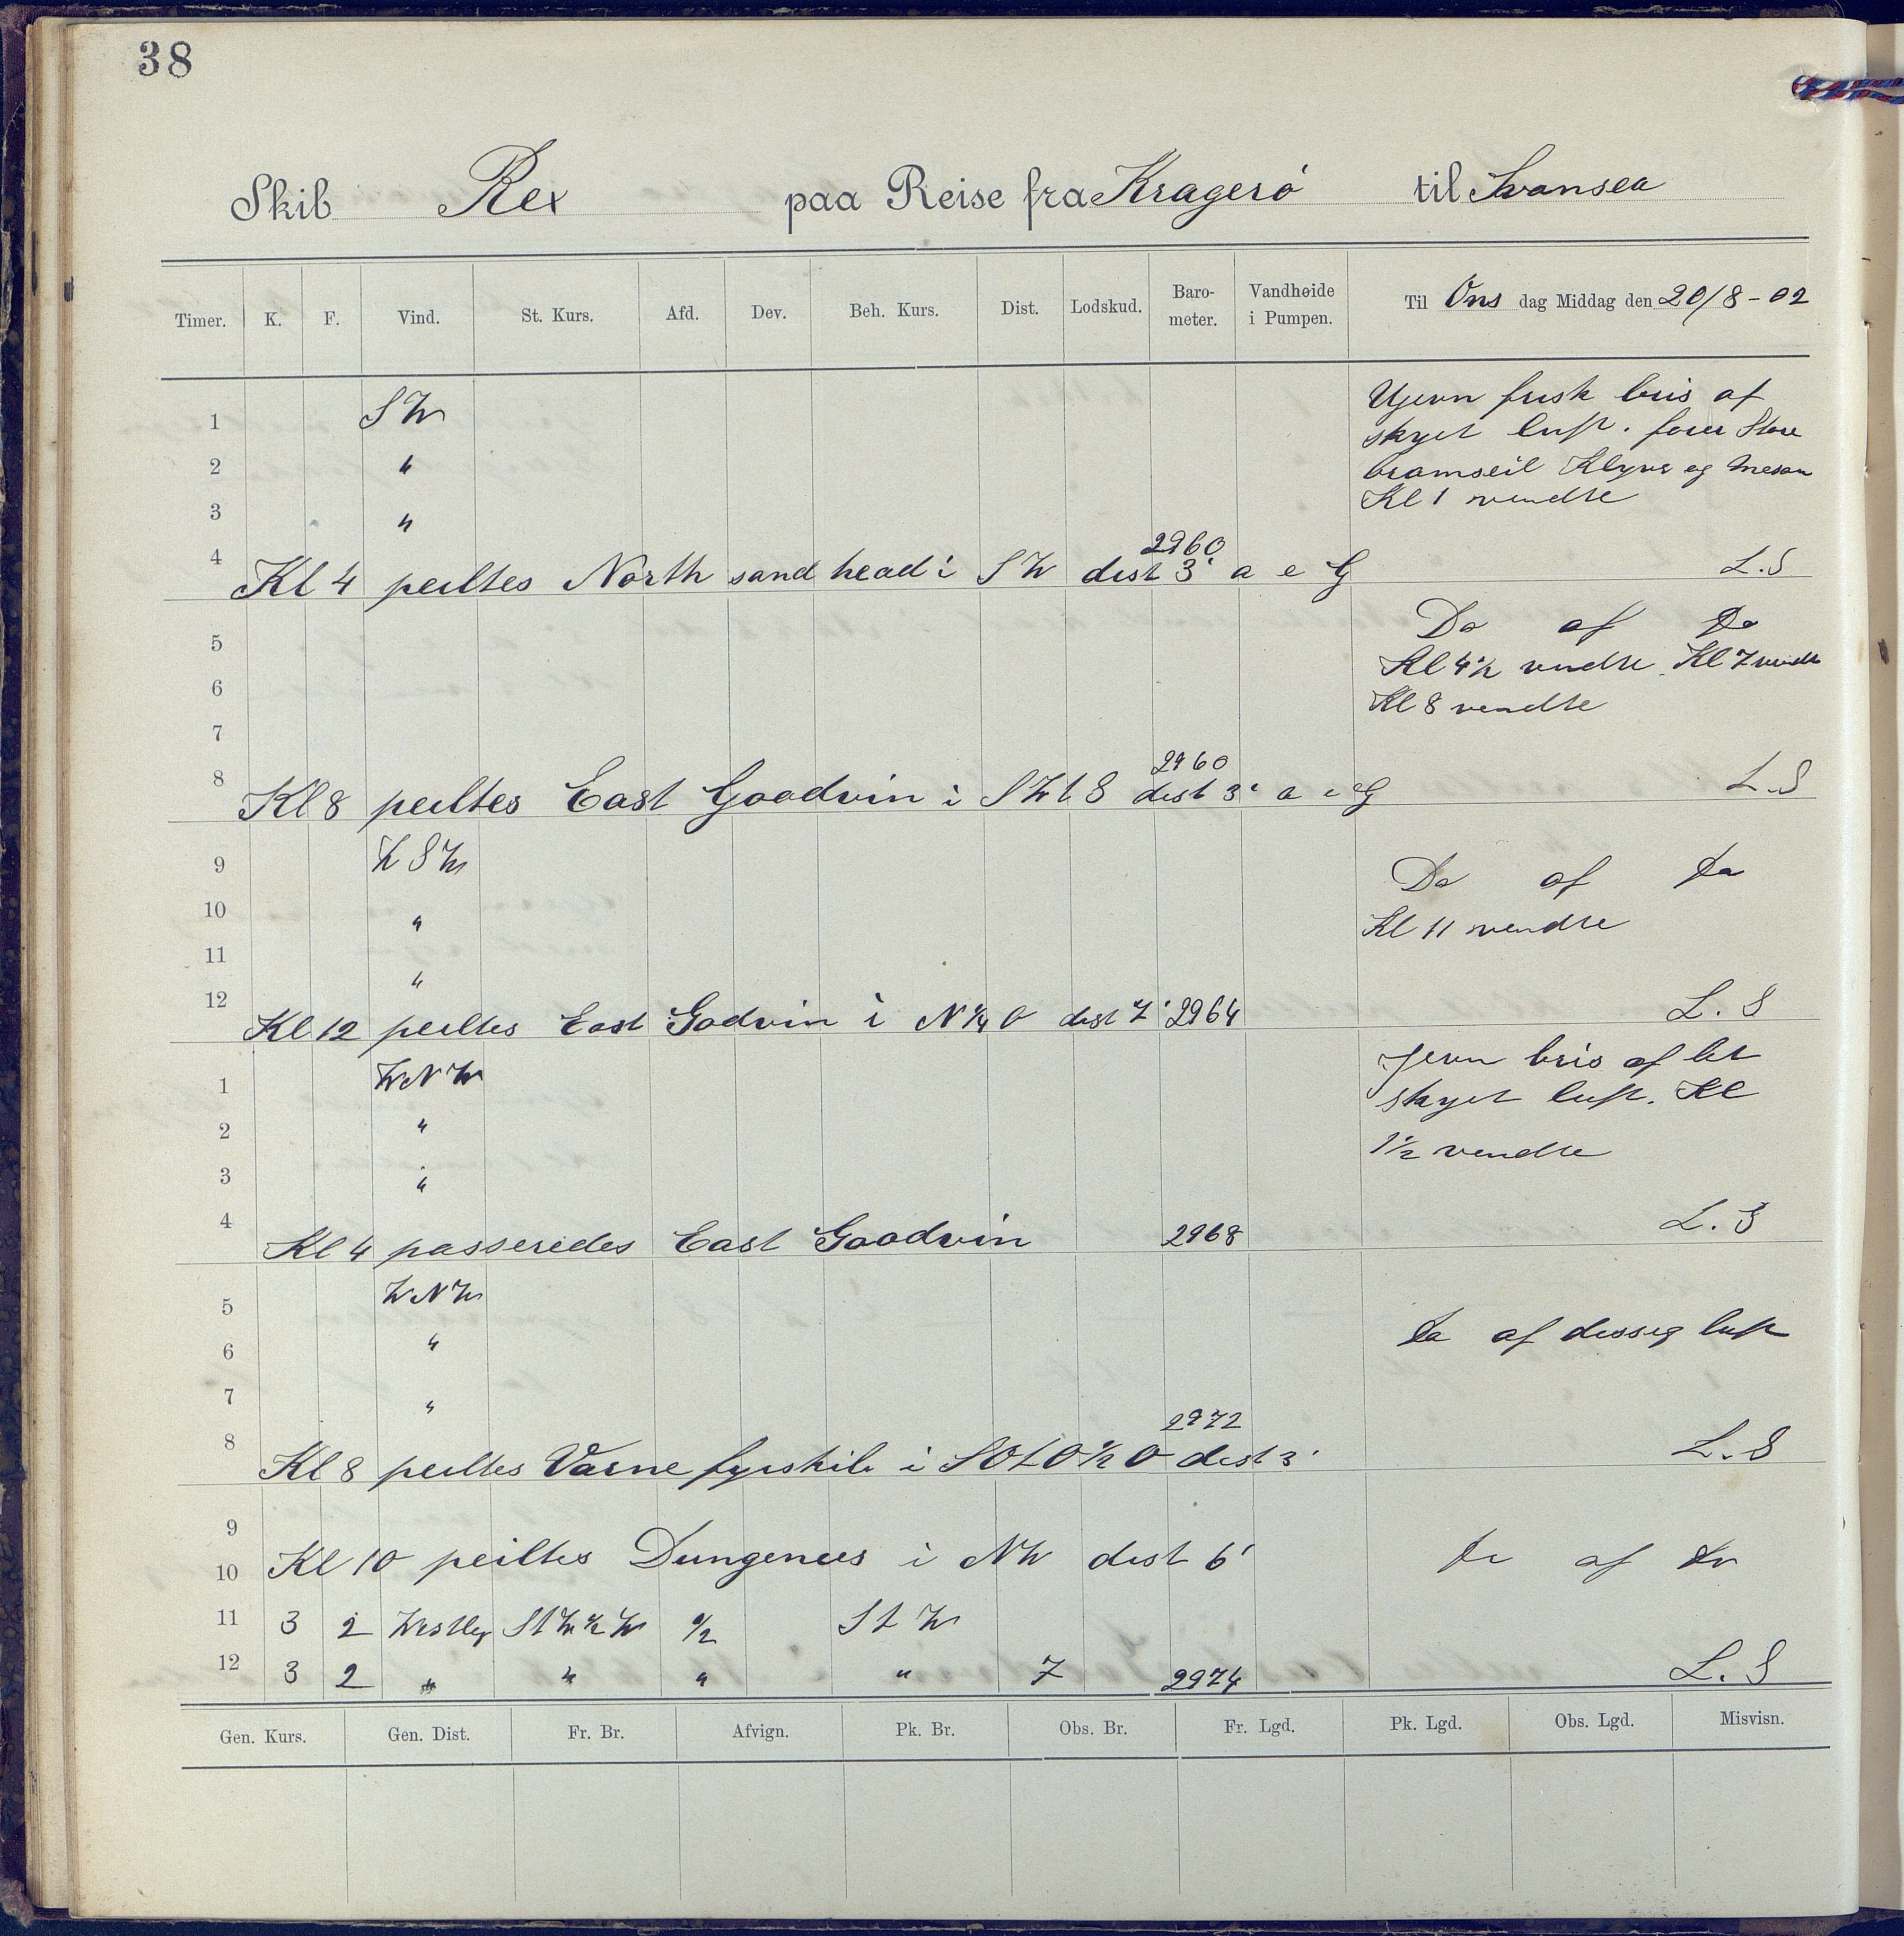 38
Skib Rex paa Reise fra Kragerö til Svansea
Timer. K. F. Vind. St. Kurs. Afd. Dev. Beh. Kurs. Dist. Lodskud. Baro-meter. Vandhøide i Pumpen. Til Ons dag Middag den 20/8-02
1 SW Ujevn frisk bris af
skyet luft. fører Store
2 " bramseil Klyver og Mesan
Kl 1 vendte
3 "
2960
4 Kl 4 peiltes North sand head i SW dist 3' a e G L.S
5 Do af Do
Kl 4½ vendte. Kl 7 vendte
6 Kl 8 vendte
7
2960
8 Kl 8 peiltes East Goodvin i SWtS dist 3' a e G L.S
9 WSW Do af Do
10 " Kl 11 vendte
11 "
12 Kl 12 peiltes East Godvin i N¼O dist 7' 2964 L.S
Jevn bris af let
1 WNW skyet luft. Kl
2 " 1½ vendte
3 "
4 Kl 4 passeredes East Goodvin 2968 L.S
5 WNW Do af disseg luft
6 "
7 "
2972
8 Kl 8 peiltes Varne fyrskib i SOtO½O dist 3' L.S
9
10 Kl 10 peiltes Dungenees i NW dist 6' Do af Do
11 3 2 Westlig StW½W ½ StW
12 3 2 " " " " 7 2974 L.S
Gen. Kurs. Gen. Dist. Fr. Br. Afvign. Pk. Br. Obs. Br. Fr. Lgd. Pk. Lgd. Obs. Lgd. Misvisn.